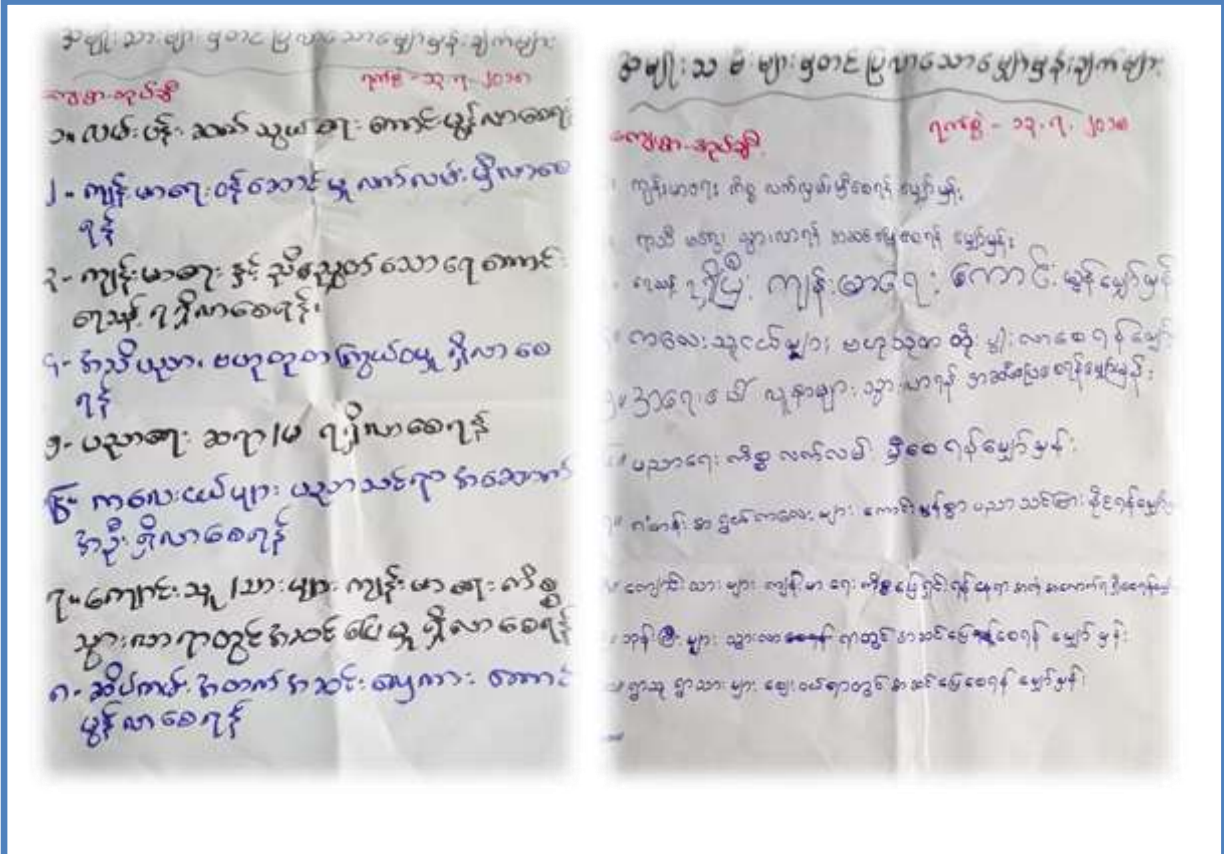 အမျိုးသားများမှတင်ပြလာသောမျှော်မှန်းချက်များ
ရက်စွဲ - ၁၃.၇.၂၀၁၈
၁။ လမ်းပန်းဆက်သွယ်ရေးကောင်းမွန်လာစေရန်
၂- ကျန်းမာရေးဝန်ဆောင်မှုလက်လှမ်းမှီလာစေ
ရန်
၃- ကျန်းမာရေးနှင့်ညီညွတ်သောရေကောင်း
ရေသန့်ရရှိလာစေရန်
၄- အသိပညာ၊ ဗဟုသုတကြွယ်ဝမှုရှိလာစေ
ရန်
၅- ပညာရေးဆရာ/မ ရရှိလာစေရန်
၆- ကလေးငယ်များပညာသင်ရာအဆောက်
အဦးရှိလာစေရန်
၇။ ကျောင်းသူ/သားများကျန်းမာရေးကိစ္စ
သွားလာရာတွင်အဆင်ပြေမှုရှိလာစေရန်
၈- ဆိပ်ကမ်းအတက်အဆင်းလှေကားကောင်း
မွန်လာစေရန်
အမျိုးသမီးများမှတင်ပြလာသောမျှော်မှန်းချက်များ
ရက်စွဲ - ၁၃.၇.၂၀၁၈
ကျန်းမာရေးကိစ္စလက်လှမ်းမှီစေရန်မျှော်မှန်း
သွားလာရန်အဆင်ပြေစေရန်မျှော်မှန်း
ရေသန့်ရရှိပြီးကျန်းမာရေးကောင်းမွန်မျှော်မှန်း
ကလေးသူငယ်များဗဟုသုတတိုးပွါးလာစေရန်မျှော်
၅။ အရေးပေါ်လူနာများသွားလာရန်အဆင်ပြေစေရန်မျှော်မှန်း
ပညာရေးကိစ္စလက်လမ်းမှီစေရန်မျှော်မှန်း
အရွယ်ကလေးများကောင်းမွန်စွာပညာသင်ကြားနိုင်ရန်မျှော်
ကျောင်းသားများကျန်းမာရေးကိစ္စဖြေရှင်းရန်နေရာ
များသွားလာရာတွင်အဆင်ပြေစေရန်မျှော်မှန်း
ရွာသူရွာသားများဈေးဝယ်ရာတွင်အဆင်ပြေစေရန်မျှော်မှန်း